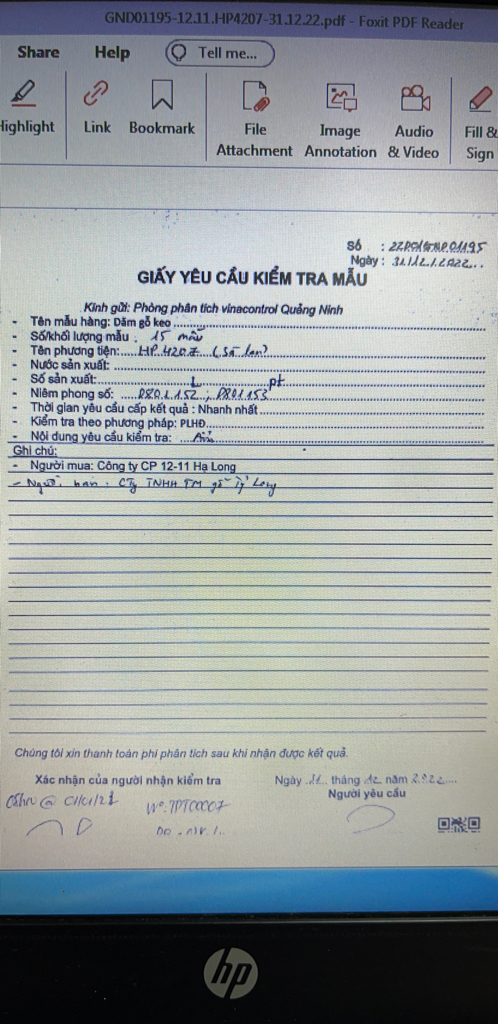 GND01195-12.11.HP4207-31.12.22.pdf - Foxit PDF Reader
Share Help Tell me...
Highlight Link Bookmark File Attachment Image Annotation Audio & Video Fill & Sign
Số :
Ngày : 31/12/2022
GIẤY YÊU CẦU KIỂM TRA MẪU
Kính gửi: Phòng phân tích vinacontrol Quảng Ninh
- Tên mẫu hàng: Dăm gỗ keo
- Số/khối lượng mẫu : 15 mẫu
- Tên phương tiện: HP.4207 (Sà lan)
- Nước sản xuất:
- Số sản xuất:
- Niêm phong số:
- Thời gian yêu cầu cấp kết quả : Nhanh nhất
- Kiểm tra theo phương pháp: PLHĐ
- Nội dung yêu cầu kiểm tra: Ẩm
Ghi chú:
- Người mua: Công ty CP 12-11 Hạ Long
- Người bán : CTy TNHH TM gỗ Tỷ Long
Chúng tôi xin thanh toán phí phân tích sau khi nhận được kết quả.
Xác nhận của người nhận kiểm tra
Ngày 31 tháng 12 năm 2022
Người yêu cầu
hp